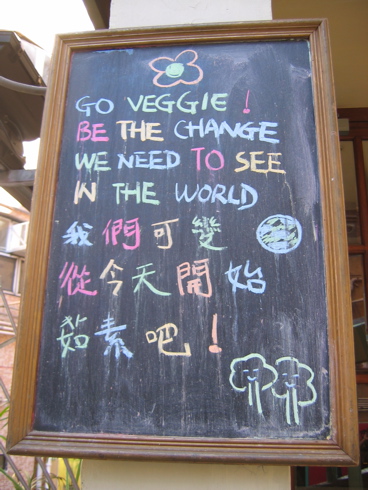 GO VEGGIE!
BE THE CHANGE
WE NEED TO SEE
IN THE WORLD
我們可變
從今天開始
茹素吧!